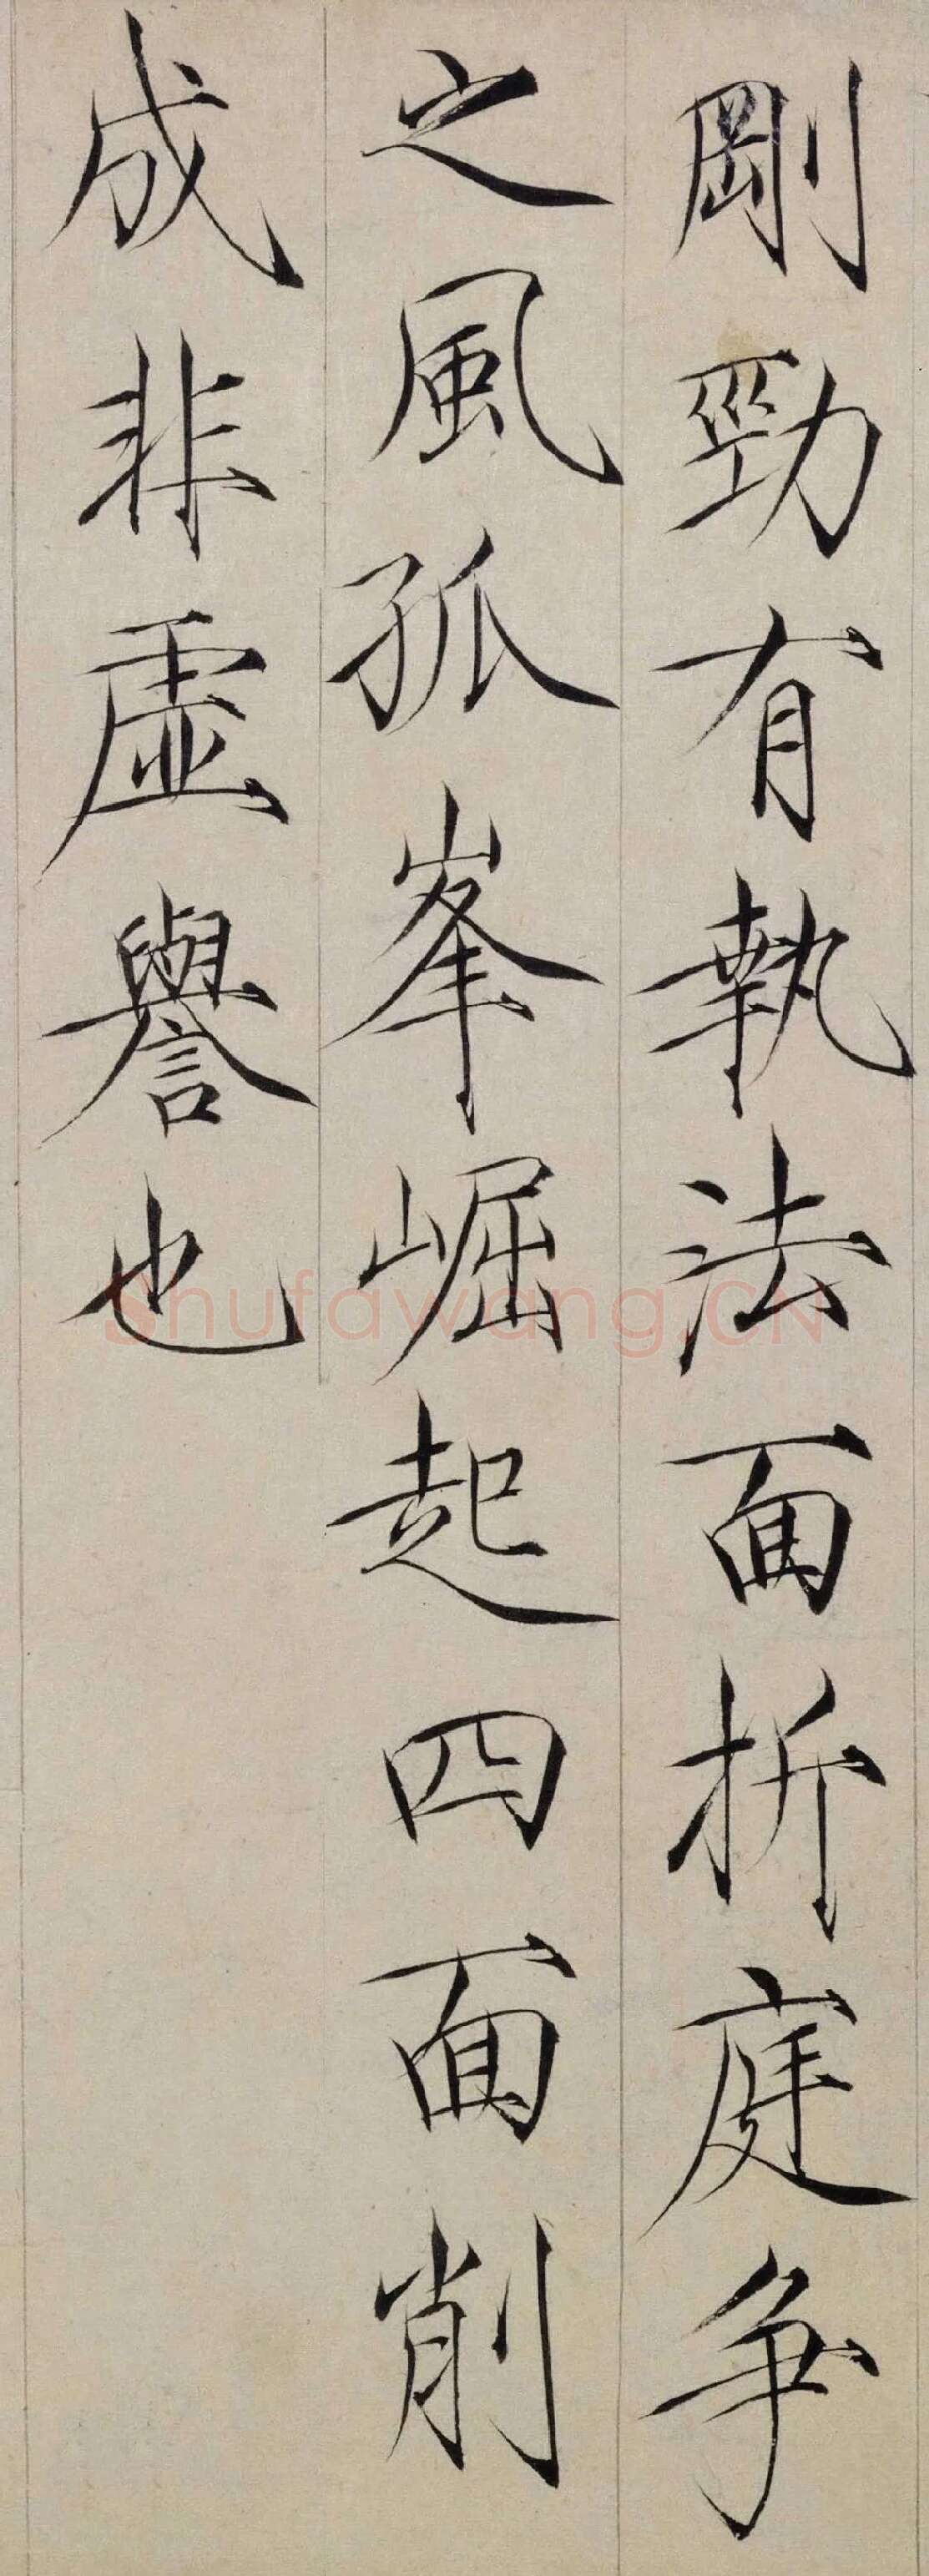 剛勁有執法面折庭爭
之風孤峯崛起四面削
成非虛譽也
Shufawang.CN